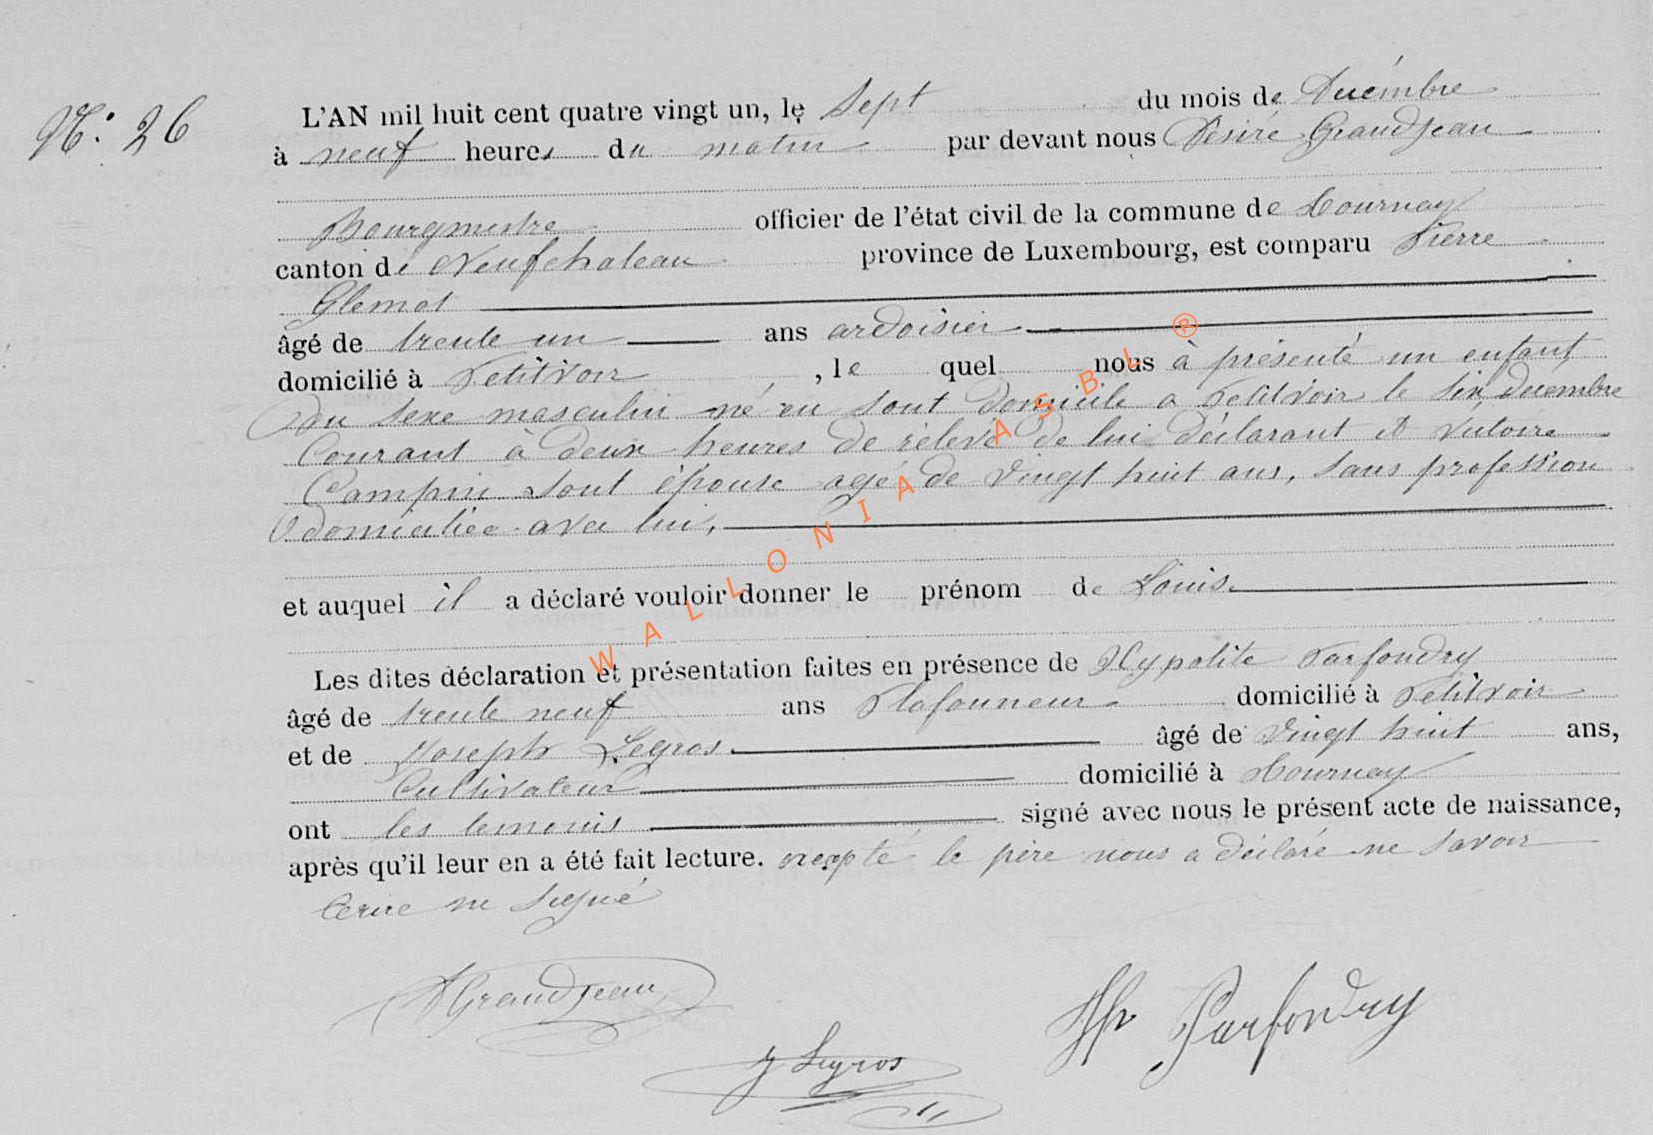 N.° 26
L'AN mil huit cent quatre vingt un, le Sept du mois de Décémbre
à neuf heures du matin par devant nous Désiré Grandjean
Bourgmestre officier de l'état civil de la commune de Tournay
canton de Neufchateau province de Luxembourg, est comparu Pierre
Glemot
âgé de trente un ans ardoisier
domicilié à Petitvoir , le quel nous à présenté un enfant
du sexe masculin né en sont domicile a Petitvoir le six decembre
Courant à deux heures de rélevé de lui déclarant et Victoire
Campin sont épouse agé de vingt huit ans, sans profession
domiciliée avec lui,
et auquel il a déclaré vouloir donner le prénom de Louis.
Les dites déclaration et présentation faites en présence de Hypolite Parfondry
âgé de trente neuf ans Plafonneur domicilié à Petitvoir
et de Joseph Legros âgé de vingt huit ans,
Cultivateur domicilié à Tournay
ont les temouis signé avec nous le présent acte de naissance,
après qu'il leur en a été fait lecture. excepté le père nous a déclaré ne savoir
Ecrire ni signé
DGrandjean
J Legros
Hp Parfondry
WALLONIA ASBL ®